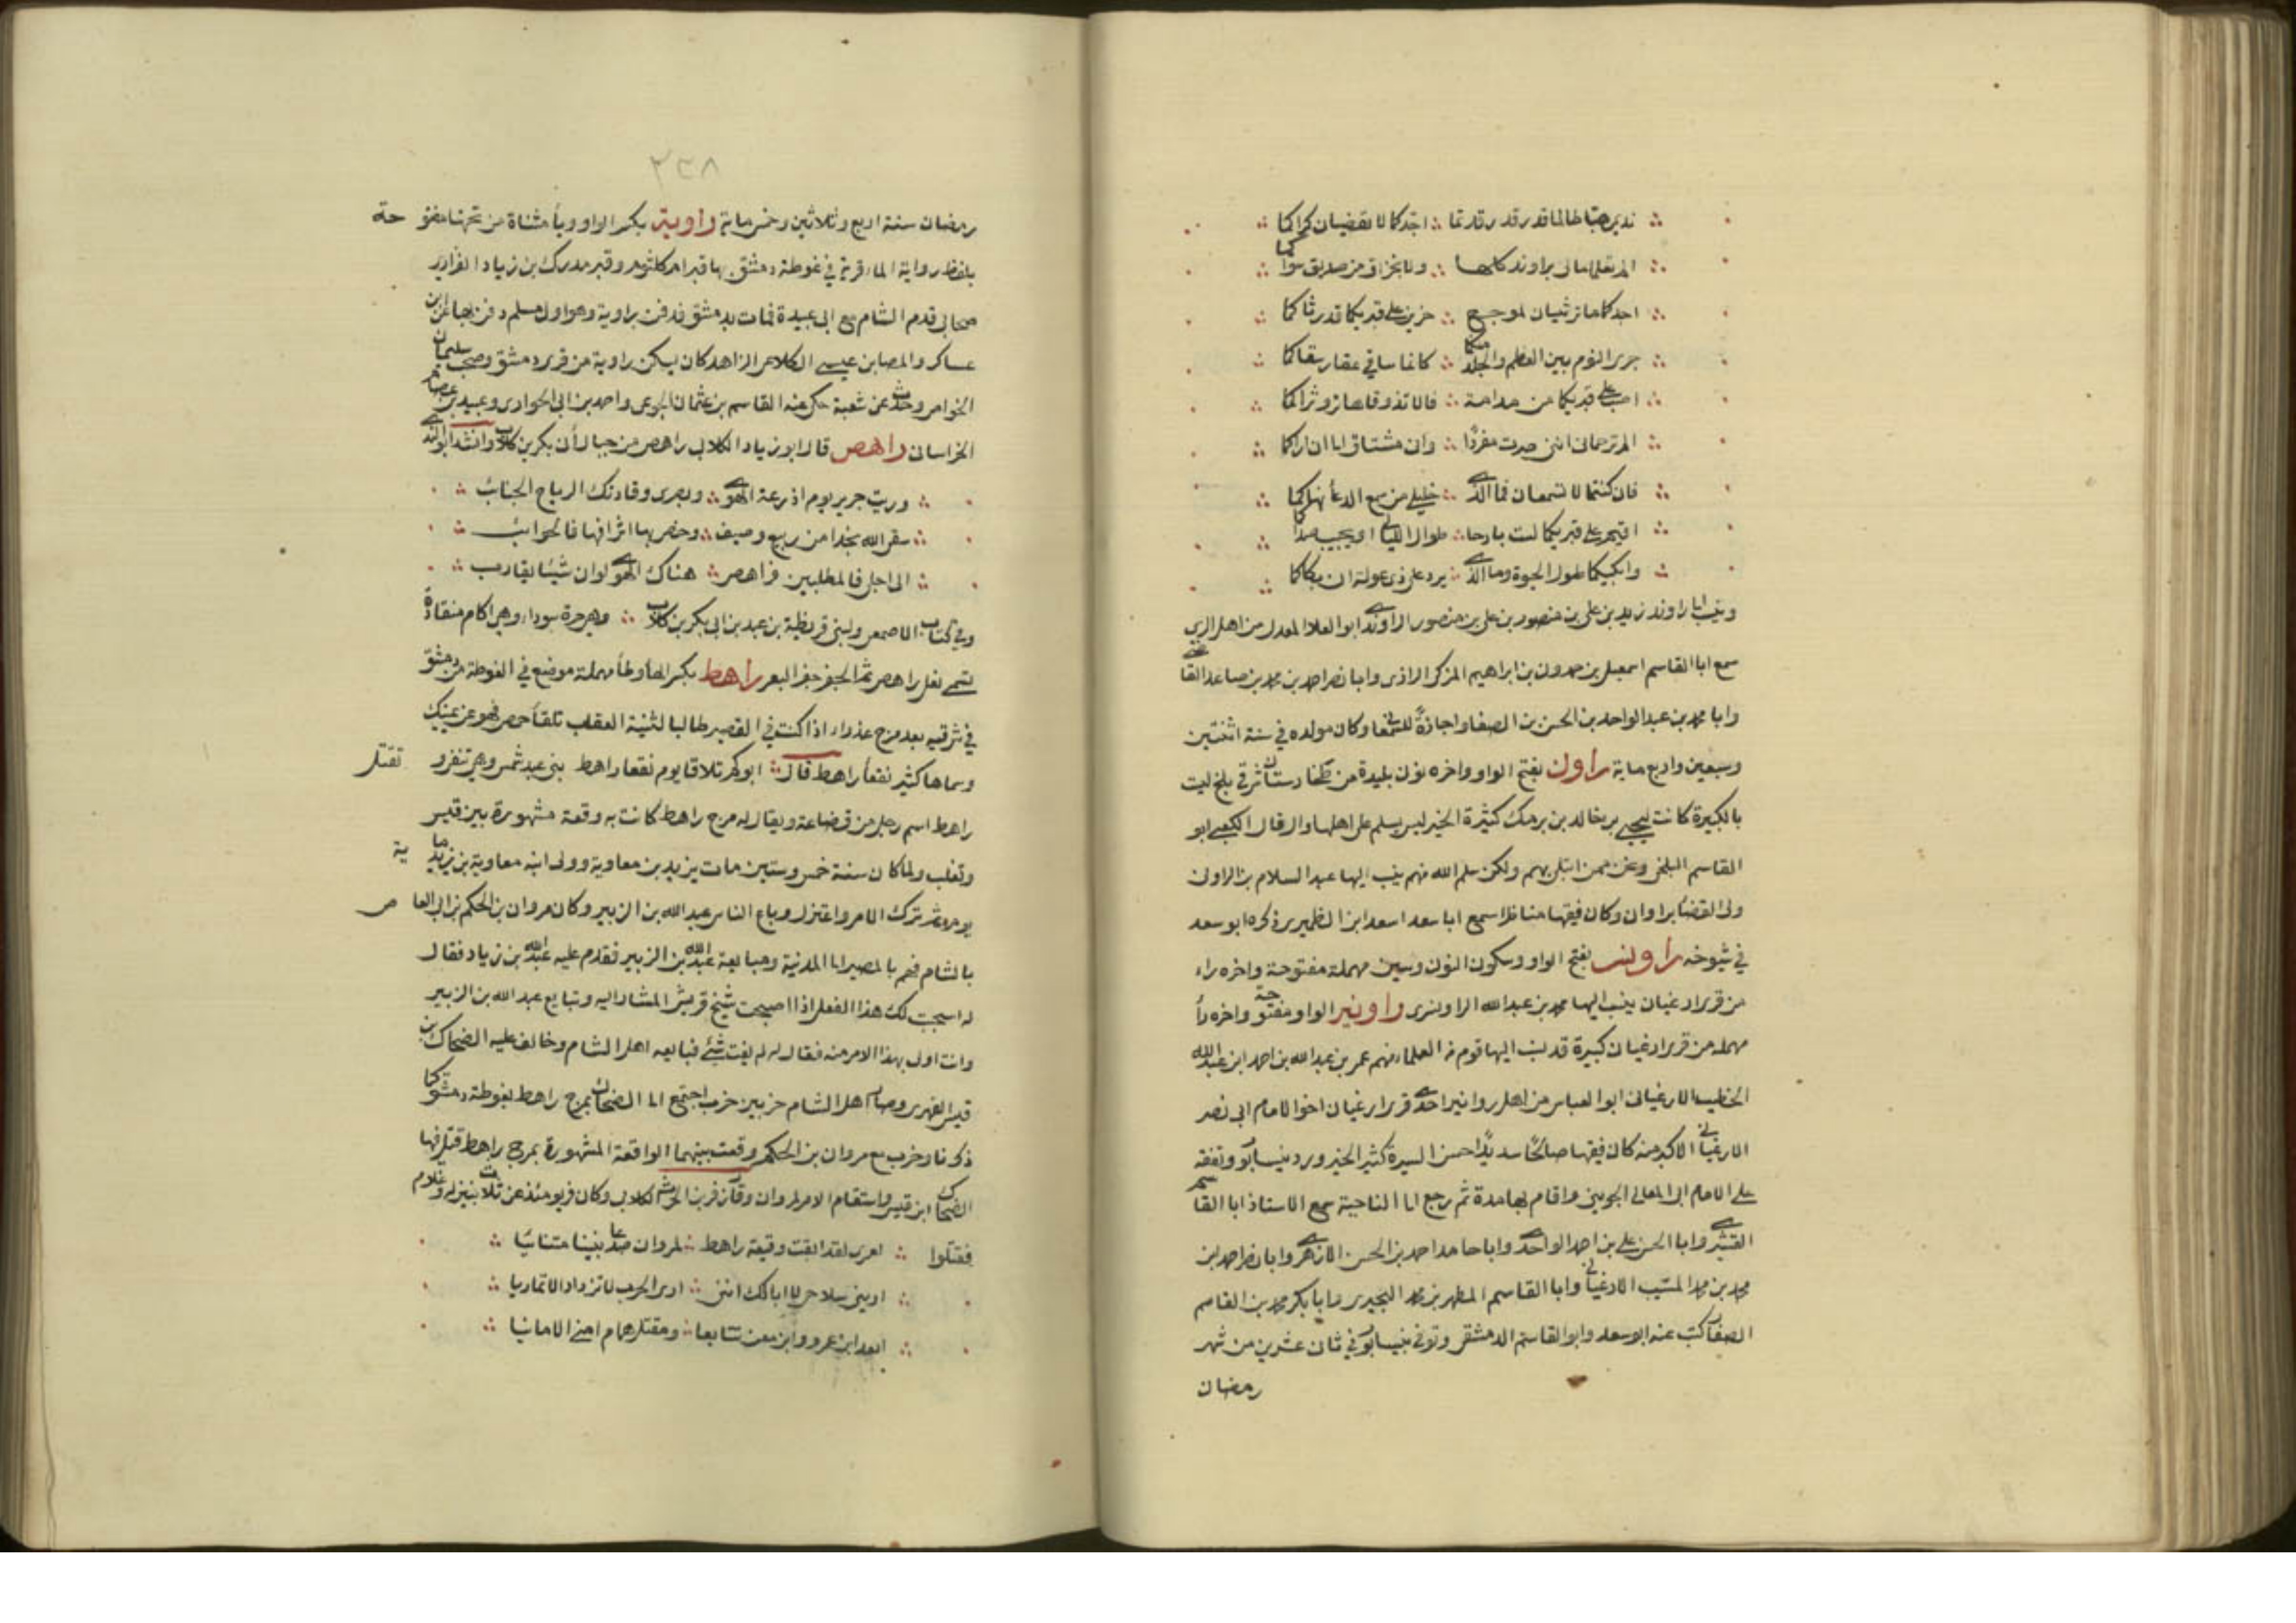 نديمي هبا طالما قد رقدتما ∴ اجدكما لا تقضيان كراكما
الم تعلما مالي براوند كلها ∴ ولا بخزاق من صديق سواكما
اجدكما ما ترثيان لموجع ∴ حزين على قبريكما قد رثاكما
جرى النوم بين العظم والجلد منكما ∴ كانما ساقي عقار سقاكما
اصب على قبريكما من مدامة ∴ فالا تذوقاها تروّ ثراكما
الم ترحماني انني صرت مفردًا ∴ وان مشتاق الى ان اراكما
فان كنتما لا تسمعان فما الذي ∴ خليلي من سمع الدعأ نهاكما
اقيم على قبريكما لست بارحا ∴ طوال الليالي او يجيب صداكما
وابكيكما طول الحيوة وما الذي ∴ يرد على ذي عولة ان بكاكما
وينسب الى راوند زيد بن علي بن منصور بن علي بن منصور الراوندي ابو العلا المعدل من اهل الري
سمع ابا القاسم اسمعيل بن حمدون بن ابراهيم المزكي الرازي وابا نصر احمد بن محمد بن صاعد القاضي
وابا محمد بن عبد الواحد بن الحسن بن الصفا واجازة للسمعاني وكان مولده في سنة اثنتين
وسبعين واربع ماية راون بفتح الواو واخره نون بليدة من طخارستان شرقي بلخ ليست
بالكبيرة كانت ليحيى بن خالد بن برمك كثيرة الخير ليس يسلم على اهلها وال قال الكعبي ابو
القاسم البلخي وعن ممن ابتلى بهم ولكن سلم الله منهم ينسب اليها عبد السلام بن الراوني
ولي القضأ براوان وكان فقيها مناظرا سمع ابا سعد اسعد ابن الظهيري ذكره ابو سعد
في شيوخه راونسر بفتح الواو وسكون النون وسين مهملة مفتوحة واخره راء
من قرى ارغيان ينسب اليها محمد بن عبد الله الراونسري راونير الواو مفتوحة واخره رأ
مهملة من قرى ارغيان كبيرة قد نسب اليها قوم من العلماء منهم عمر بن عبد الله بن احمد ابن عبد الله
الخطيب الارغياني ابو العباس من اهل روانير احدى قرى ارغيان اخو الامام ابي نصر
الارغياني الاكبر منه كان فقيها صالحًا سديدًا حسن السيرة كثير الخير ورد نيسابور وتفقه
على الامام ابي المعالي الجويني واقام بها مدة ثم رجع الى الناحية سمع الاستاذ ابا القاسم
القشيري وابا الحسن علي بن احمد الواحدي وابا حامد احمد بن الحسن الازهري وابا نصر احمد بن
محمد بن محمد المسيب الارغياني وابا القاسم المطهر بن محمد البحيري وابا بكر محمد بن القاسم
الصفار كتب عنه ابو سعد وابو القاسم الدمشقي وتوفي بنيسابور في ثان عشرين من شهر
رمضان
٢٣٨
رمضان سنة اربع وثلاثين وخمس ماية راوية بكسر الواو ويأ مثناة من تحتها مفتوحة
بلفظ رواية الماء قرية في غوطة دمشق بها قبر ام كلثوم وقبر مدرك بن زياد الفزاري
صحابي قدم الشام مع ابي عبيدة فمات بدمشق فدفن براوية وهو اول مسلم دفن بها عن ابن
عساكر والمصا بن عيسى الكلاعي الزاهد كان يسكن راوية من قرى دمشق وصحب سليمان
الخواص وحدث عن شعبة حكى عنه القاسم بن عثمان الجوعي واحمد بن ابي الحواري وعبيد بن عصام
الخراساني راهص قال ابو زياد الكلابي راهص من جبال أبي بكر بن كلاب وانشد ابو الندى
وريت جرير يوم اذرعة الهوى ∴ وبصرى وقادتك الرياح الجنائب
سقى الله نجدا من ربيع وصيف ∴ وخص بها اشرافها فالجوانب
الى اجلى فالمطلبين فراهص ∴ هناك الهوى لو ان شيئا يقارب
وفي كتاب الاصمعي ولبني قريظة بن عبد بن ابي بكر بن كلاب ∴ وهي حرة سوداء وهي اكام منقادة
تسمى نعل راهص ثم الجفر جفر البعر راهط بكسر الهأ وطأ مهملة موضع في الغوطة من دمشق
في شرقيه بعد مرج عذراء اذا كنت في القصير طالبا لثنية العقاب تلقأ حمص فهو عن يمينك
وسماها كثير نقعأ راهط قال ∴ ابوكم تلاقا يوم نقعا راهط بني عبد شمس وهي تنفى وتقتل
راهط اسم رجل من قضاعة ويقال له مرج راهط كانت به وقعة مشهورة بين قيس
وتغلب ولما كان سنة خمس وستين مات يزيد بن معاوية وولى ابنه معاوية بن يزيد ماية
يوم ثم ترك الامر واعتزل وبايع الناس عبد الله بن الزبير وكان مروان بن الحكم بن ابي العاص
بالشام فهم بالمصير الى المدنية ومبايعة عبد الله بن الزبير فقدم عليه عبد الله بن زياد فقال
له استحيت لك هذا الفعل اذا اصبحت شيخ قريش المشار اليه وتبايع عبد الله بن الزبير
وانت اولى بهذا الامر منه فقال له لم يفت شئ فبايعه اهل الشام وخالف عليه الضحاك بن
قيس الفهري وصار اهل الشام حزبين حزب اجتمع الى الضحاك بمرج راهط بغوطة دمشق كما
ذكرنا وحزب مع مروان بن الحكم ووقعت بينهما الواقعة المشهورة بمرج راهط قتل فيها
الضحاك ابن قيس واستقام الامر لمروان وقال زفر بن الحرث الكلابي وكان فر يومئذ عن ثلاث بنين له وغلام
فقتلوا ∴ لعمري لقد ابقت وقيعة راهط ∴ لمروان صدعا بيننا متنائيا
اريني سلاحي لا ابا لك انني ∴ ارى الحرب لا تزداد الا تماديا
ابعد ابن عمرو وابن معن تتابعا ∴ ومقتل همام امنى الامانيا